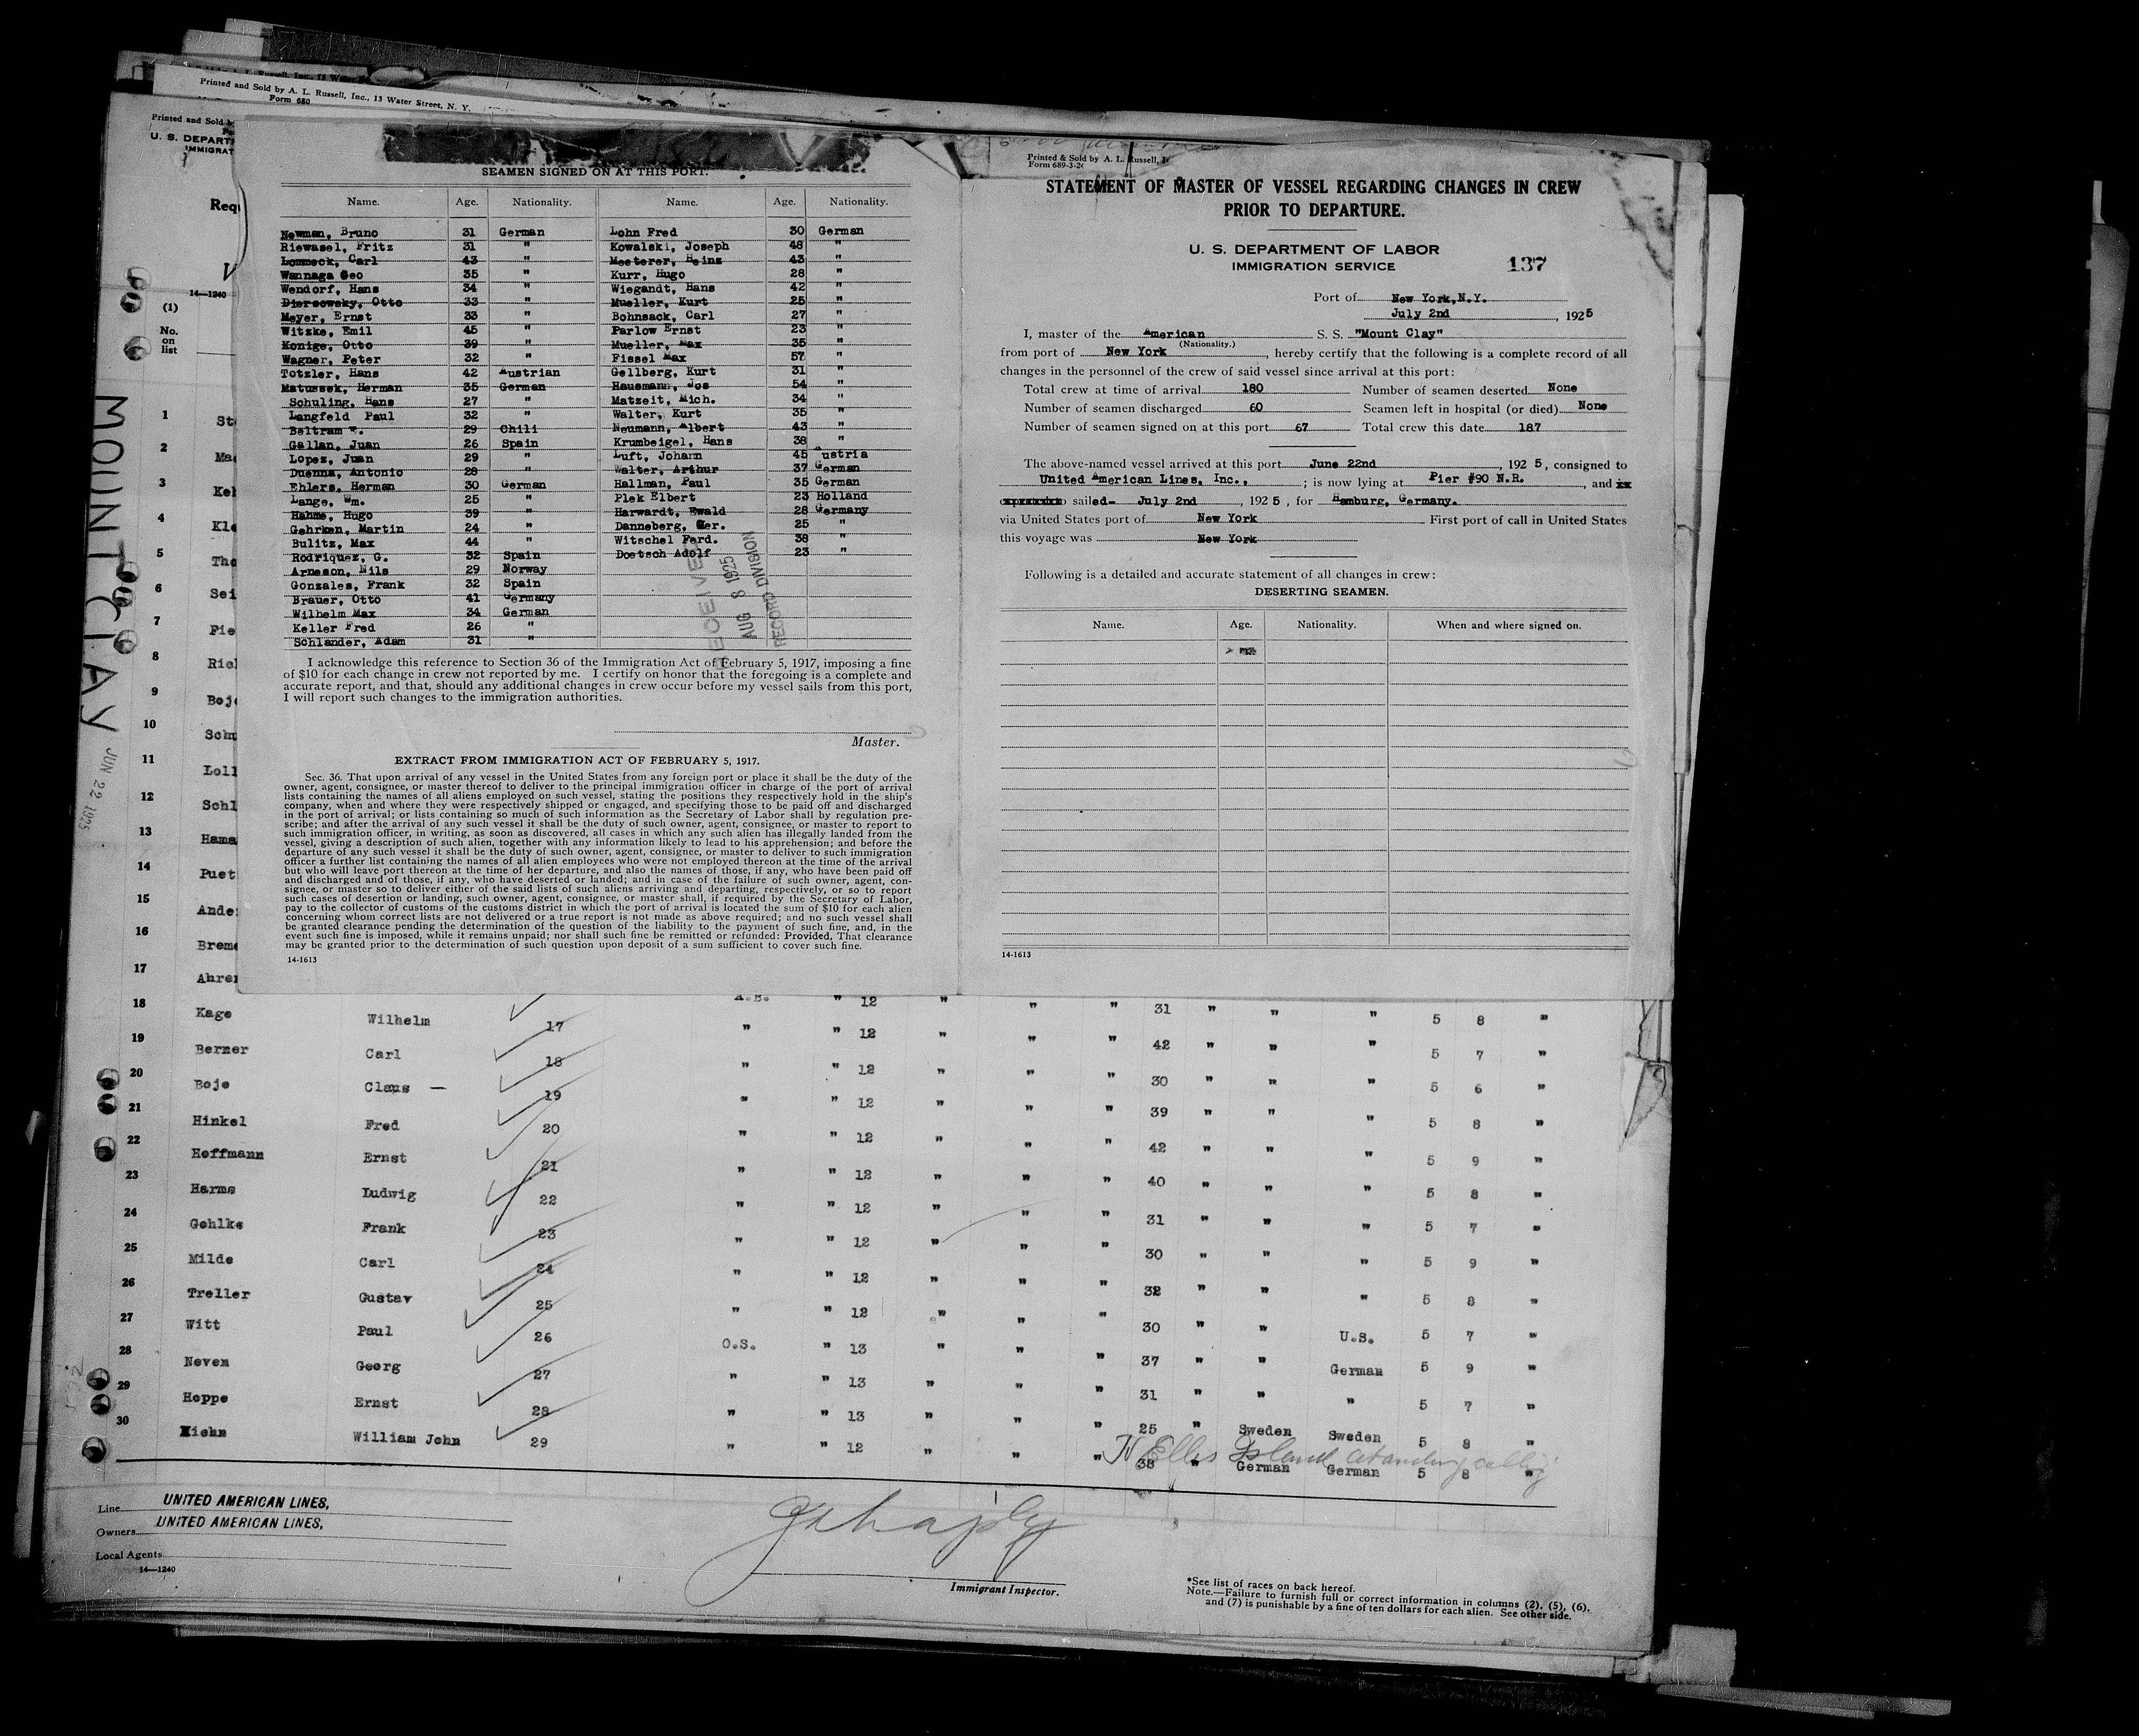 Printed and Sold by A. L. Russell, Inc., 13 Water Street, N. Y.
Form 680
Printed and Sold
U. S. DEPART
IMMIGRAT
Requ
V
14—1240
(1)
No.
on
list
MOUNT CLAY
JUN 22 1925
SEAMEN SIGNED ON AT THIS PORT.
Name. Age. Nationality. Name. Age. Nationality.
Newman, Bruno 31 German Lohn Fred 30 German
Riewasel, Fritz 31 " Kowalski, Joseph 48 "
Lommeck, Carl 43 " Mesterer, Heinz 43 "
Wannaga Geo 35 " Kurr, Hugo 28 "
Wendorf, Hans 34 " Wiegandt, Hans 42 "
Diersowsky, Otto 33 " Mueller, Kurt 25 "
Meyer, Ernst 33 " Bohnsack, Carl 27 "
Witzke, Emil 45 " Parlow Ernst 23 "
Konige, Otto 39 " Mueller, Max 35 "
Wagner, Peter 32 " Fissel Max 57 "
Totzler, Hans 42 Austrian Gellberg, Kurt 31 "
Matussek, Herman 35 German Hausmann, Jos 54 "
Schuling, Hans 27 " Matzeit, Mich. 34 "
Langfeld Paul 32 " Walter, Kurt 35 "
Beltram 29 Chili Neumann, Albert 43 "
Gallan, Juan 26 Spain Krumbeigel, Hans 38 "
Lopez, Juan 29 " Luft, Johann 45 Austria
Duenna, Antonio 28 " Walter, Arthur 37 German
Ehlers, Herman 30 German Hallman, Paul 35 German
Lange, Wm. 25 " Plek Elbert 23 Holland
Hahms, Hugo 39 " Harwardt, Ewald 28 Germany
Gehrken, Martin 24 " Danneberg, Ger. 25 "
Bulitz, Max 44 " Witschel Ferd. 38 "
Rodriquez, G. 32 Spain Doetsch Adolf 23 "
Arneson, Nils 29 Norway
Gonzales, Frank 32 Spain
Brauer, Otto 41 Germany
Wilhelm Max 34 German
Keller Fred 26 "
Schlander, Adam 31 "
RECEIVED
AUG 8 1925
RECORD DIVISION
I acknowledge this reference to Section 36 of the Immigration Act of February 5, 1917, imposing a fine
of $10 for each change in crew not reported by me. I certify on honor that the foregoing is a complete and
accurate report, and that, should any additional changes in crew occur before my vessel sails from this port,
I will report such changes to the immigration authorities.
Master.
EXTRACT FROM IMMIGRATION ACT OF FEBRUARY 5, 1917.
Sec. 36. That upon arrival of any vessel in the United States from any foreign port or place it shall be the duty of the
owner, agent, consignee, or master thereof to deliver to the principal immigration officer in charge of the port of arrival
lists containing the names of all aliens employed on such vessel, stating the positions they respectively hold in the ship's
company, when and where they were respectively shipped or engaged, and specifying those to be paid off and discharged
in the port of arrival; or lists containing so much of such information as the Secretary of Labor shall by regulation pre-
scribe; and after the arrival of any such vessel it shall be the duty of such owner, agent, consignee, or master to report to
such immigration officer, in writing, as soon as discovered, all cases in which any such alien has illegally landed from the
vessel, giving a description of such alien, together with any information likely to lead to his apprehension; and before the
departure of any such vessel it shall be the duty of such owner, agent, consignee, or master to deliver to such immigration
officer a further list containing the names of all alien employees who were not employed thereon at the time of the arrival
but who will leave port thereon at the time of her departure, and also the names of those, if any, who have been paid off
and discharged and of those, if any, who have deserted or landed; and in case of the failure of such owner, agent, con-
signee, or master so to deliver either of the said lists of such aliens arriving and departing, respectively, or so to report
such cases of desertion or landing, such owner, agent, consignee, or master shall, if required by the Secretary of Labor,
pay to the collector of customs of the customs district in which the port of arrival is located the sum of $10 for each alien
concerning whom correct lists are not delivered or a true report is not made as above required; and no such vessel shall
be granted clearance pending the determination of the question of the liability to the payment of such fine, and, in the
event such fine is imposed, while it remains unpaid; nor shall such fine be remitted or refunded: Provided, That clearance
may be granted prior to the determination of such question upon deposit of a sum sufficient to cover such fine.
14-1613
Printed & Sold by A. L. Russell, I
Form 689-3-2
STATEMENT OF MASTER OF VESSEL REGARDING CHANGES IN CREW
PRIOR TO DEPARTURE.
U. S. DEPARTMENT OF LABOR
IMMIGRATION SERVICE
137
Port of New York, N.Y.
July 2nd, 1925
I, master of the American S. S. "Mount Clay"
(Nationality.)
from port of New York, hereby certify that the following is a complete record of all
changes in the personnel of the crew of said vessel since arrival at this port:
Total crew at time of arrival 180 Number of seamen deserted None
Number of seamen discharged 60 Seamen left in hospital (or died) None
Number of seamen signed on at this port 67 Total crew this date 187
The above-named vessel arrived at this port June 22nd, 1925, consigned to
United American Lines, Inc., ; is now lying at Pier #90 N.R., and
sailed- July 2nd, 1925, for Hamburg, Germany.
via United States port of New York First port of call in United States
this voyage was New York
Following is a detailed and accurate statement of all changes in crew:
DESERTING SEAMEN.
Name. Age. Nationality. When and where signed on.
14-1613
1 St
2 Ma
3 Ke
4 Kl
5 Th
6 Sei
7 Fie
8 Ric
9 Boj
10 Schm
11 Loll
12 Schl
13 Hama
14 Puet
15 Ande
16 Breme
17 Ahre
A.B. " 12 " " " 31 " " " 5 8 "
18 Kage Wilhelm 17 " " 12 " " " 42 " " " 5 7 "
19 Berner Carl 18 " " 12 " " " 30 " " " 5 6 "
20 Boje Claus — 19 " " 12 " " " 39 " " " 5 8 "
21 Hinkel Fred 20 " " 12 " " " 42 " " " 5 9 "
22 Hoffmann Ernst 21 " " 12 " " " 40 " " " 5 8 "
23 Harms Ludwig 22 " " 12 " " " 31 " " " 5 7 "
24 Gehlke Frank 23 " " 12 " " " 30 " " " 5 9 "
25 Milde Carl 24 " " 12 " " " 32 " " " 5 8 "
26 Treller Gustav 25 " " 12 " " " 30 " " U.S. 5 7 "
27 Witt Paul 26 O.S. " 13 " " " 37 " " German 5 9 "
28 Neven Georg 27 " " 13 " " " 31 " " " 5 7 "
29 Hoppe Ernst 28 " " 13 " " " 25 " Sweden Sweden 5 8 "
30 Kiehn William John 29 " " 12 " " " 38 " German German 5 8 "
Ellis Island
Line UNITED AMERICAN LINES,
Owners UNITED AMERICAN LINES,
Local Agents
14—1240
Immigrant Inspector.
*See list of races on back hereof.
Note.—Failure to furnish full or correct information in columns (2), (5), (6),
and (7) is punishable by a fine of ten dollars for each alien. See other side.